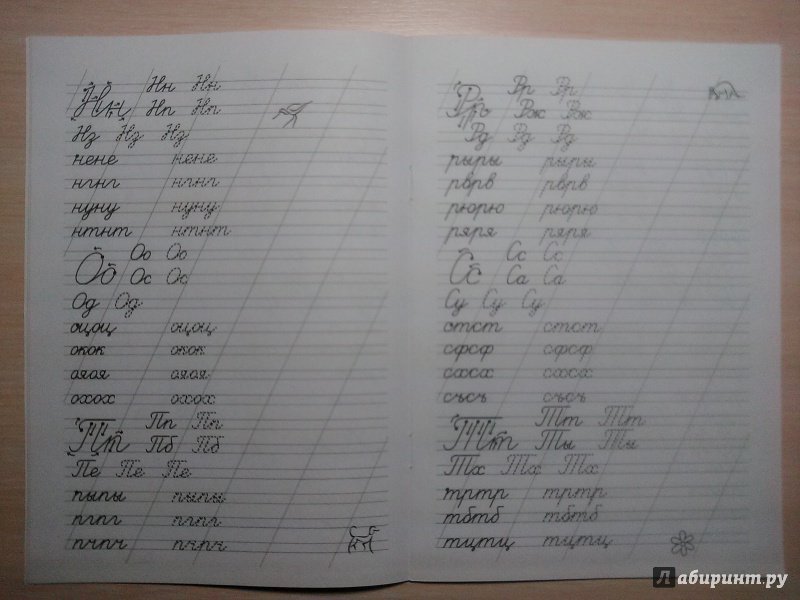 Нн Нн Нн
Нп Нп
Нз Нз Нз
нене нене
нгнг нгнг
нуну нуну
нтнт нтнт
Оо Оо Оо
Ос Ос
Од Од
оцоц оцоц
окок окок
ояоя ояоя
охох охох
Пп Пп Пп
Пб Пб
Пе Пе Пе
пыпы пыпы
пгпг пгпг
пчпч пчпч
Рр Рр Рр
Рж Рж
Рд Рд Рд
рыры рыры
рврв рврв
рюрю рюрю
ряря ряря
Сс Сс Сс
Са Са
Су Су Су
стст стст
сфсф сфсф
схсх схсх
съсъ съсъ
Тт Тт Тт
Ты Ты
Тх Тх Тх
тртр тртр
тбтб тбтб
тцтц тцтц
Лабиринт.ру